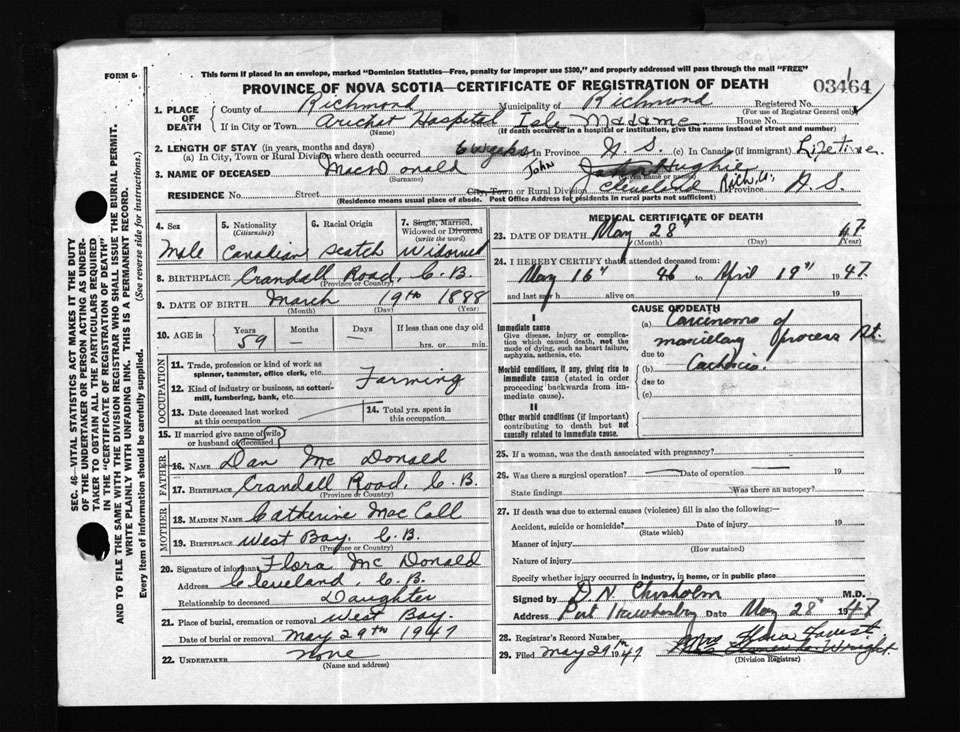 FORM 6.
This form if placed in an envelope, marked "Dominion Statistics—Free, penalty for improper use $300," and properly addressed will pass through the mail "FREE"
PROVINCE OF NOVA SCOTIA—CERTIFICATE OF REGISTRATION OF DEATH
03464
1. PLACE OF DEATH
County of Richmond Municipality of Richmond Registered No.
(For use of Registrar General only)
If in City or Town Arichat Hospital Street Isle Madame House No.
(Name) (If death occurred in a hospital or institution, give the name instead of street and number)
2. LENGTH OF STAY (in years, months and days)
(a) In City, Town or Rural Division where death occurred 6 weeks (b) In Province N. S. (c) In Canada (if immigrant) Lifetime.
3. NAME OF DECEASED MacDonald John Hughie
(Surname)
RESIDENCE No. Street City, Town or Rural Division Cleveland Rich. Co. Province N. S.
(Residence means usual place of abode. Post Office Address for residents in rural parts not sufficient)
4. Sex Male
5. Nationality (Citizenship) Canadian
6. Racial Origin Scotch
7. Single, Married, Widowed or Divorced (write the word) Widowed
8. BIRTHPLACE Crandall Road, C. B.
(Province or Country)
9. DATE OF BIRTH March 19th 1888
(Month) (Day) (Year)
10. AGE in Years 59 Months — Days — If less than one day old hrs. or min.
OCCUPATION
11. Trade, profession or kind of work as spinner, teamster, office clerk, etc.
12. Kind of industry or business, as cotton-mill, lumbering, bank, etc. Farming
13. Date deceased last worked at this occupation
14. Total yrs. spent in this occupation
15. If married give name of wife or husband of deceased
FATHER
16. NAME Dan Mc Donald
17. BIRTHPLACE Crandall Road, C. B.
(Province or Country)
MOTHER
18. MAIDEN NAME Catherine Mac Call
19. BIRTHPLACE West Bay. C. B.
(Province or Country)
20. Signature of informant Flora Mc Donald
Address Cleveland, C. B.
Relationship to deceased Daughter
21. Place of burial, cremation or removal West Bay.
Date of burial or removal May 29th 1947
22. UNDERTAKER None
(Name and address)
MEDICAL CERTIFICATE OF DEATH
23. DATE OF DEATH May 28" 47
(Month) (Day) (Year)
24. I HEREBY CERTIFY that I attended deceased from:
May 16" 46 to April 19" 1947.
and last saw h alive on 19
CAUSE OF DEATH
I
Immediate cause
Give disease, injury or complication which caused death, not the mode of dying, such as heart failure, asphyxia, asthenia, etc.
(a) Carcinoma of
maxillary process Rt.
due to
Morbid conditions, if any, giving rise to immediate cause (stated in order proceeding backwards from immediate cause).
(b) Cachexia.
due to
(c)
II
Other morbid conditions (if important) contributing to death but not causally related to immediate cause.
25. If a woman, was the death associated with pregnancy?
26. Was there a surgical operation? Date of operation 19
State findings Was there an autopsy?
27. If death was due to external causes (violence) fill in also the following:—
Accident, suicide or homicide? Date of injury 19
(State which)
Manner of injury
(How sustained)
Nature of injury
Specify whether injury occurred in industry, in home, or in public place
Signed by D. N. Chisholm M.D.
Address Port Hawkesbury Date May 28" 1947
28. Registrar's Record Number
29. Filed May 29th 1947
(Division Registrar)
SEC. 46—VITAL STATISTICS ACT MAKES IT THE DUTY OF THE UNDERTAKER OR PERSON ACTING AS UNDERTAKER TO OBTAIN ALL THE PARTICULARS REQUIRED IN THE "CERTIFICATE OF REGISTRATION OF DEATH" AND TO FILE THE SAME WITH THE DIVISION REGISTRAR WHO SHALL ISSUE THE BURIAL PERMIT.
WRITE PLAINLY WITH UNFADING INK. THIS IS A PERMANENT RECORD.
Every item of information should be carefully supplied. (See reverse side for instructions.)